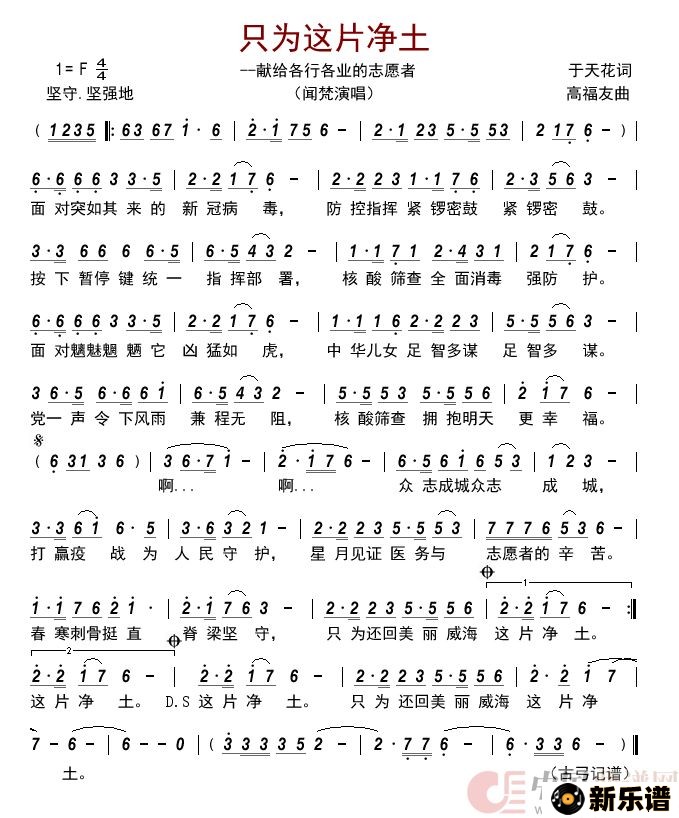 只为这片净土
1= F 4/4
--献给各行各业的志愿者
于天花词
坚守.坚强地
(闻梵演唱)
高福友曲
( 1235 ‖: 63 67 i · 6 | 2 · i 75 6 – | 2 · i 23 5 · 5 53 | 2 17 6 – ) |
6 · 6 6 6 3 3 · 5 | 2 · 2 2 1 7 6 – | 2 · 2 2 3 1 · 1 7 6 | 2 · 3 5 6 3 – |
面 对突如其 来 的 新 冠病 毒, 防 控指挥 紧 锣密鼓 紧 锣密 鼓。
3 · 3 6 6 6 6 · 5 | 6 · 5 4 3 2 – | 1 · 1 7 1 2 · 4 3 1 | 2 1 7 6 – |
按 下 暂停 键 统 一 指 挥部 署, 核 酸 筛查 全 面消毒 强防 护。
6 · 6 6 6 6 6 · 5 | 2 · 2 2 1 7 6 – | 2 · 2 1 6 2 · 2 2 3 | 5 · 5 5 6 3 – |
面 对魑魅魍 魉 它 凶 猛如 虎, 中 华儿女 足 智多谋 足 智多 谋。
3 6 · 5 6 · 6 6 i | 6 · 6 5 4 3 2 – | 5 · 5 5 3 6 · 5 1 2 | 2 1 7 6 – |
党一 声 令 下风雨 兼 程无 阻, 核 酸筛查 拥 抱明天 更 幸 福。
( 6 31 3 6 ) | 3 6 · 7 i – | 2 · i 7 6 – | 6 · 5 6 i 6 5 3 | 1 2 3 – |
啊... 啊... 众 志成城众志 成 城,
3 · 3 6 i 6 · 5 6 | 3 · 6 3 2 1 | 3 · 3 2 3 5 · 5 6 | 7 7 7 6 5 3 – |
打 赢疫 战 为 人 民 守 护, 星 月见证 医 务与 志愿者的 辛 苦。
1
i · i 7 6 2 i · | 2 · i 7 6 3 – | 2 · 2 2 3 5 · 5 5 6 | 2 · 2 i 7 6 – :‖
春 寒刺骨挺 直 脊 梁坚 守, 只 为还回美 丽 威海 这 片 净 土。
2
2 · 2 i 7 6 – | 2 · 2 i 7 6 – | 2 · 2 2 3 5 · 5 5 6 | 2 · 2 i 7 |
这 片 净 土。 D.S 这 片 净 土。 只 为 还回美 丽 威海 这 片 净
7 – 6 – | 6 – – 0 | ( 3 3 3 3 5 | 2 · 7 7 6 – | 6 · 3 3 6 – ) ‖
土。 (古弓记谱)
新乐谱